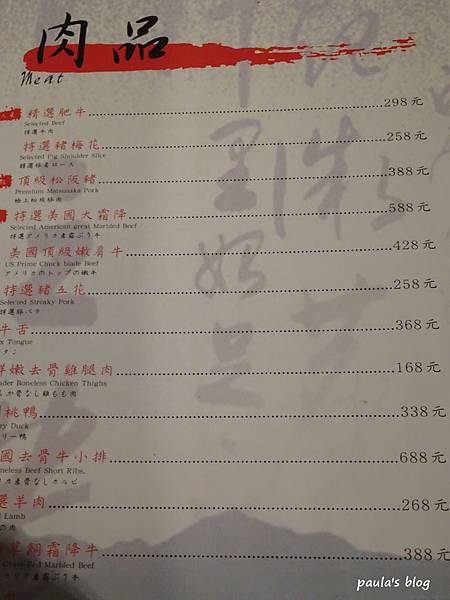 肉品
Meat
精選肥牛 298元
Selected Beef
特選牛肉
特選豬梅花 258元
Selected Pig Shoulder Slice
特選豚肩ロース
頂級松阪豬 388元
Premium Matsuzaka Pork
極上松坂豚肉
特選美國大霜降 588元
Selected American great Marbled Beef
特選アメリカ産霜ぶり牛
美國頂級嫩肩牛 428元
US Prime Chuck blade Beef
アメリカのトップの嫩牛
特選豬五花 258元
Selected Streaky Pork
特選豚バラ
牛舌 368元
x Tongue
タン
鮮嫩去骨雞腿肉 168元
der Boneless Chicken Thighs
か骨なし雞もも肉
桃鴨 338元
ry Duck
リー鴨
國去骨牛小排 688元
neless Beef Short Ribs,
リカ産骨なしカルビ
選羊肉 268元
Lamb
の肉
草飼霜降牛 388元
Grass Fed Marbled Beef
メリカ産霜ぶり牛
paula's blog